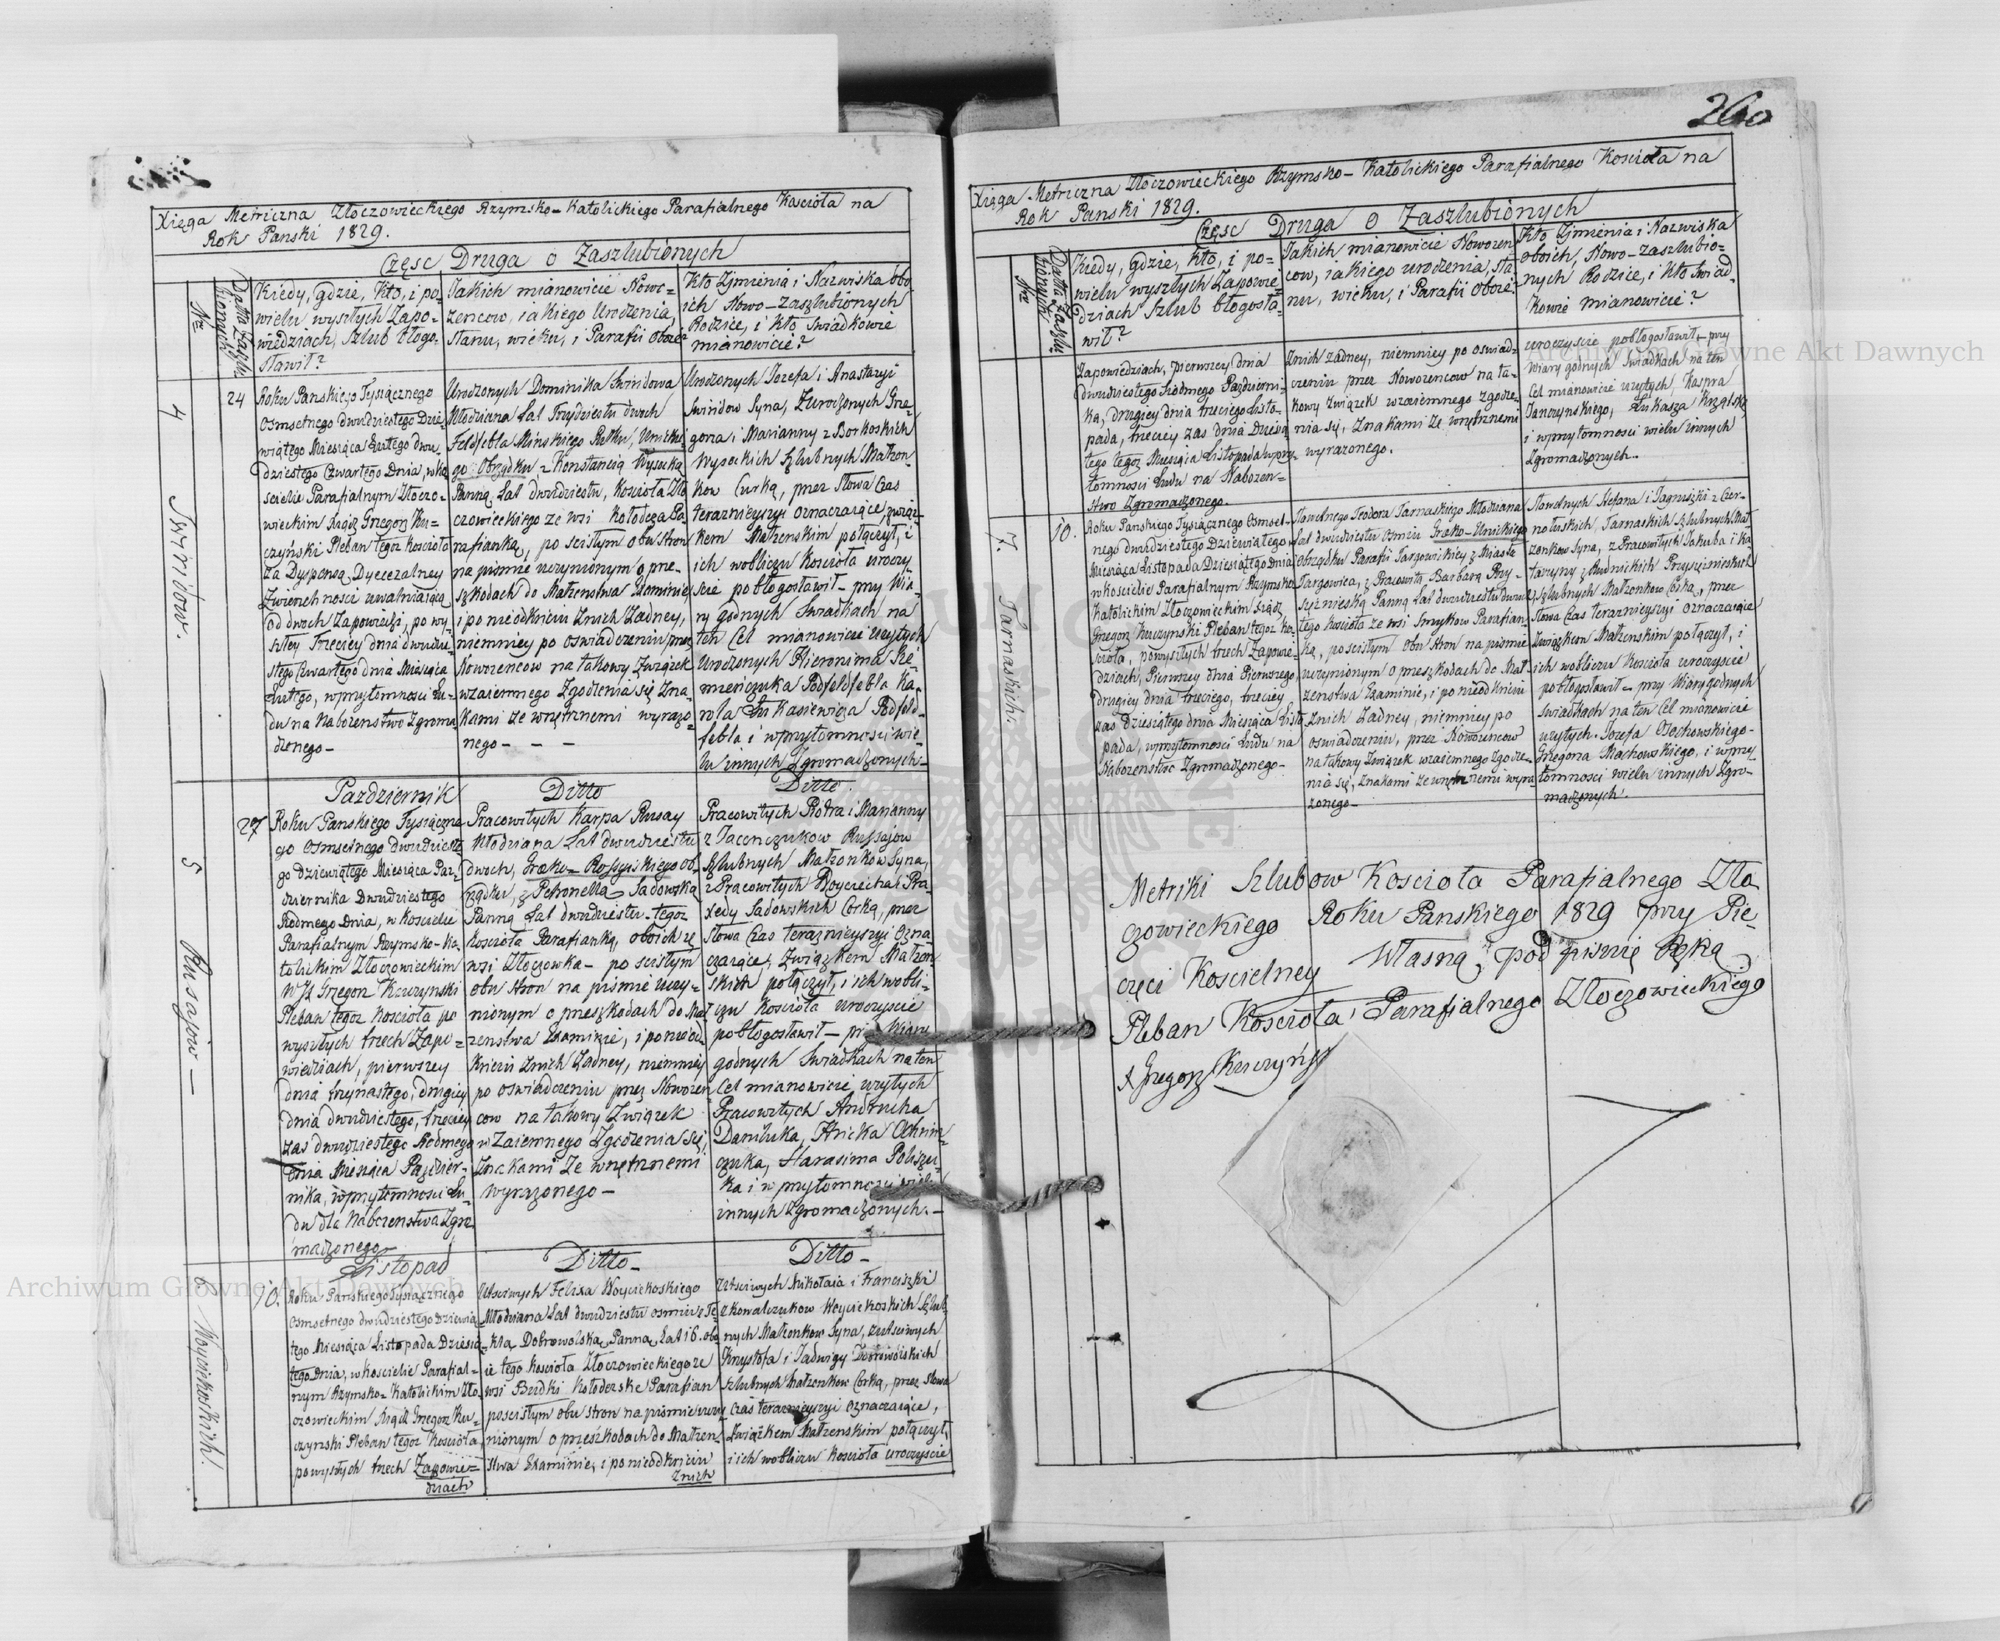 Xięga Metriczna Złoczowieckiego Rzymsko-Katolickiego Parafialnego Kościoła na
Rok Panski 1829.
Częsc Druga o Zaszlubionych
Nr
Datta Zaszlu
bionych
Kiedy, gdzie, Kto, i po=
wielu wyszłych Zapo=
wiedziach, Szlub błogo=
sławił?
Jakich mianowicie Nowo=
zencow, iakiego Urodzenia,
stanu, wieku, i Parafii oboie?
Kto Zimienia i Nazwiska obo
ich Nowo-Zaszlubionych
Rodzice, i Kto Swiadkowie
mianowicie?
4
Swiridow.
24
Roku Panskiego Tysiącznego
Osmsetnego dwudziestego Dzie
wiątego Miesiąca Lutego dwu
dziestego Czwartego Dnia, w Ko
scielie Parafialnym Złoczo=
wieckim Xiądz Grzegorz Ku=
czyński Pleban tegoz Kościoła
za Dyspensą Dyecezalney
Zwierzchnosci uwalniaiącą
od dwoch Zapowiedzi, po wy
szłey Trzeciey dnia dwudzie
stego Czwartego dnia Miesiąca
Lutego, w przytomnosci Lu=
du na Nabozenstwo Zgroma
dzonego-
Urodzonych Dominika Swiridowa
Młodziana Lat Trzydziestu dwoch
Feldfebla Mińskiego Pułku, Unickie
go Obrządku z Konstancią Wysocką
Panną, Lat dwudziestu, Kościoła Zło
czowieckiego ze wsi Kołodeża Pa=
rafianką, po scisłym obu stron
na pismie uczynionym o prze=
szkodach do Małzenstwa Examinie,
i po nieodkriciu Znich Zadney,
niemniey po oswiadczeniu przez
Nowozencow na takowy Związek
wzaiemnego Zgodzenia się Zna=
kami ze wnętrznemi wyrazo=
nego - - -
Urodzonych Jozefa i Anastazyi
Swiridow Syna, Z Urodzonych Grze=
gorza i Marianny z Borkoskich
Wysockich Szlubnych Małzon=
kow Curką, przez Słowa Czas
terazniejszyi oznaczaiące, związ=
kiem Małzenskim połączył, i
ich wobliczu Kościoła uroczy=
scie pobłogosławił - przy Wia=
ry godnych Swiadkach na
ten Cel mianowicie Uzytych
Urodzonych Hieronima Kre=
mieńczuka Podfeldfebla Ka=
rola Podfeld=
febla i w przytomnosci wie=
lu innych Zgromadzonych-
5
Rusajow-
Pazdziernik
27
Roku Panskiego Tysiączne
go Osmsetnego dwudzieste
go dziewiątego Miesiąca Paz=
dziernika Dwudziestego
Siodmego Dnia, w Kościelie
Parafialnym Rzymsko-Ka
tolickim Złoczowieckim
WJX Grzegorz Kuczynski
Pleban tegoz Kościoła po
wyszłych trzech Zapo=
wiedziach, pierwszey
dnia trzynastego, drugiey
dnia dwudziestego, trzeciey
zas dwudziestego Siodmego
dnia Miesiąca Pazdzier=
nika, w przytomnosci Lu=
du dla Nabozenstwa Zgro
madzonego
Ditto
Pracowitych Karpa Rusay
Młodziana Lat dwudziestu
dwoch, Greko-Rossyiskiego ob=
rządku, z Petronellą Sadowską
Panną Lat dwudziestu-tegoz
Kościoła Parafianką, oboich ze
wsi Złoczowka - po scisłym
obu stron na pismie uczy=
nionym o przeszkodach do Mał
zenstwa Examinie, i po nieod=
kriciu Znich Zadney, niemniey
po oswiadczeniu przez Nowozen
cow na takowy Związek
wzaiemnego Zgodzenia się,
Znakami ze wnętrznemi
wyrazonego-
Ditto
Pracowitych Piotra i Marianny
z Russajow
Szlubnych Małzonkow Syna,
z Pracowitych Woyciecha i Pra=
xedy Sadowskich Corką, przez
Słowa Czas terazniejszyi ozna=
czaiące, związkiem Małzen
skich połączył, i ich wobli=
czu Kościoła uroczyscie
pobłogosławił - przy Wiary
godnych Swiadkach na ten
Cel mianowicie uzytych
Pracowitych Andrucha
Daniluka, Hricka Ochrim=
czuka, Harasima Poliszczu=
ka i w przytomnosci wielu
innych Zgromadzonych.-
6
Woyciekoskich.
Listopad
10.
Roku Panskiego Tysiącznego
Osmsetnego dwudziestego Dziewią
tego Miesiąca Listopada Dziesią=
tego Dnia, w Kościelie Parafial=
nym Rzymsko-Katolickim Zło=
czowieckim Xiądz Grzegorz Ku=
czynski Pleban tegoz Kościoła
po wyszłych trzech Zapowie=
dziach
Ditto-
Uczciwych Felixa Woyciekoskiego
Młodziana Lat dwudziestu osmiu z Te=
klą Dobrowolską Panną, Lat 16. obo
ie tego Kościoła Złoczowieckiego ze
wsi Budki Kołoderske Parafian
po scisłym obu stron na pismie uczy
nionym o przeszkodach do Małzen=
stwa Examinie, i po nieodkriciu
Znich
Ditto-
Uczciwych Mikołaia i Franciszki
z Kowalczukow Woyciekoskich Szlub=
nych Małzonkow Syna, z Uczciwych
Krzysztofa i Jadwigy Dobrowolskich
Szlubnych Małzonkow Corką, przez Słowa
Czas terazniejszyi oznaczaiące,
Związkiem Małzenskim połączył,
i ich wobliczu Kościoła uroczyscie
260
Xięga Metriczna Złoczowieckiego Rzymsko-Katolickiego Parafialnego Kościoła na
Rok Panski 1829.
Częsc Druga o Zaszlubionych
Nr
Datta Zaszlu
bionych
Kiedy, gdzie, Kto, i po=
wielu wyszłych Zapowie=
dziach Szlub błogosła=
wił?
Jakich mianowicie Nowozen
cow, iakiego urodzenia, sta
nu, wieku, i Parafii oboie?
Kto Zimienia i Nazwiska
oboich, Nowo-zaszlubio=
nych Rodzice, i Kto Swiad=
kowie mianowicie?
Zapowiedziach, pierwszey dnia
dwudziestego Siodmego Pazdzierni=
ka, drugiey dnia trzeciego Listo=
pada, trzeciey zas dnia Dziesią
tego tegoz Miesiąca Listopada w przy
tomnosci Ludu na Nabozen=
stwo Zgromadzonego.
Znich zadney, niemniey po oswiad=
czeniu przez Nowozencow na ta=
kowy Związek wzaiemnego zgodze=
nia się, Znakami ze wnętrznemi
wyrazonego.
uroczyscie pobłogosławił - przy
Wiary godnych Swiadkach na ten
Cel mianowicie uzytych, Kaspra
Janczynskiego, Łukasza
i w przytomnosci wielu innych
Zgromadzonych.
7.
Tarnaskich.
10.
Roku Panskiego Tysiącznego Osmset=
nego dwudziestego Dziewiątego
Miesiąca Listopada Dziesiątego Dnia
w Kościelie Parafialnym Rzymsko=
Katolickim Złoczowieckim Xiądz
Grzegorz Kuczynski Pleban tegoz Ko=
scioła, po wyszłych trzech Zapowie=
dziach, Pierwszey dnia Pierwszego,
drugiey dnia trzeciego, trzeciey
zas dziesiątego dnia Miesiąca Listo
pada, w przytomnosci Ludu na
Nabozenstwo Zgromadzonego-
Sławetnego Teodora Tarnaskiego Młodziana
Lat dwudziestu osmiu Greko-Unickiego
obrządku Parafii Targowickiey z Miasta
Targowica, z Pracowitą Barbarą Przy=
sięznieską Panną Lat dwudziestu dwuch
tego Kościoła ze wsi Smykow Parafian=
ką, po scisłym obu stron na pismie
uczynionym o przeszkodach do Mał=
zenstwa Examinie, i po nieodkriciu
Znich Zadney, niemniey po
oswiadczeniu, przez Nowozencow
na takowy Związek wzaiemnego Zgodze=
nia się, Znakami ze wnętrznemi wyra=
zonego-
Sławetnych Stefana i Jagnieszki z Czer=
notuskich, Tarnaskich Szlubnych Mał
zonkow Syna, z Pracowitych Jakuba i Ka
tarzyny z Rudnickich Przysięznieskich
Szlubnych Małzonkow Corką, przez
Słowa Czas terazniejszyi oznaczaiące
Związkiem Małzenskim połączył, i
ich wobliczu Kościoła uroczyscie
pobłogosławił - przy Wiary godnych
Swiadkach na ten Cel mianowicie
uzytych Jozefa
Grzegorza Machowskiego, i w przy
tomnosci wielu innych Zgro=
madzonych.
Metriki Szlubow Kościoła Parafialnego Zło
czowieckiego Roku Panskiego 1829 przy Pie=
częci Koscielney Własną podpisuię Ręką
Pleban Kościoła Parafialnego Złoczowieckiego
X Grzegorz Kuczyński
Archiwum Główne Akt Dawnych
Archiwum Główne Akt Dawnych